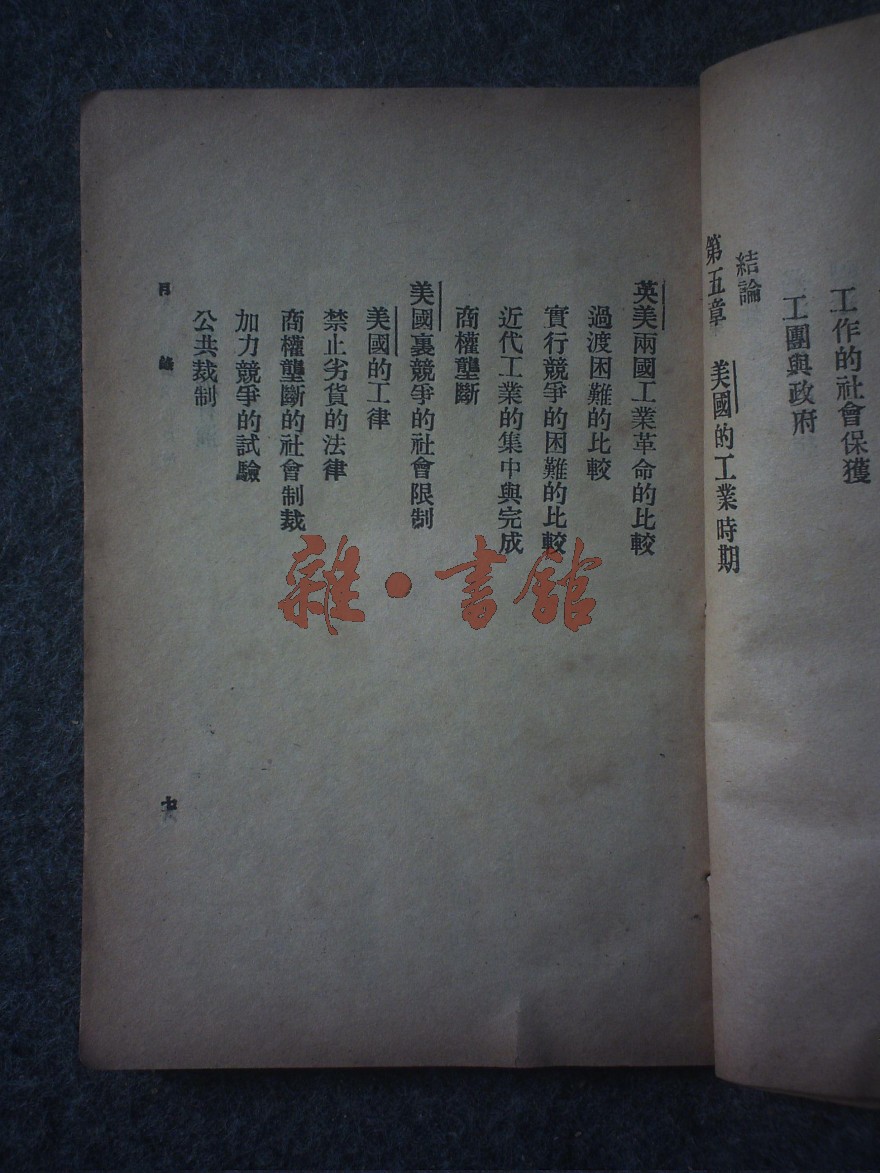 工作的社會保獲
工團與政府
結論
第五章 美國的工業時期
英美兩國工業革命的比較
過渡困難的比較
實行競爭的困難的比較
近代工業的集中與完成
商權壟斷
美國裏競爭的社會限制
美國的工律
禁止劣貨的法律
商權壟斷的社會制裁
加力競爭的試驗
公共裁制
目錄
雜·書館